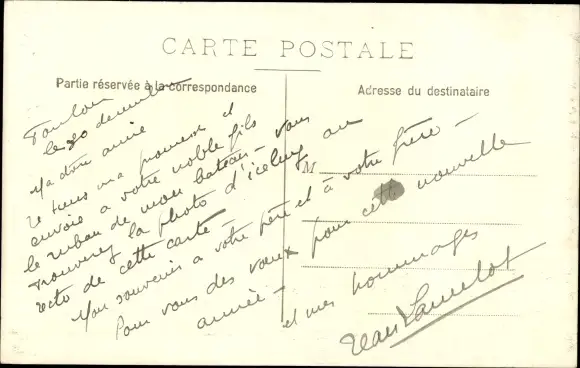 CARTE POSTALE
Partie réservée à la correspondance
Adresse du destinataire
M
Toulon
le 30 décembre
Ma chère amie
Je tiens ma promesse et
envoie à votre noble fils
le ruban de mon bateau - vous
trouverez la photo d'icelui au
recto de cette carte -
Mon souvenir à votre père et à votre frère -
Pour vous des vœux pour cette nouvelle
année -
et mes hommages
Jean Lancelot